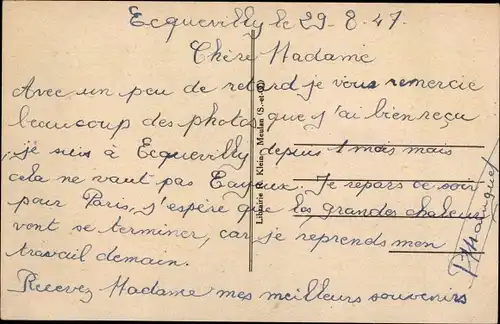 Ecquevilly le 29-8-47
Chère Madame
Avec un peu de retard je vous remercie
beaucoup des photos que j'ai bien reçu
je suis à Ecquevilly depuis 1 mois mais
cela ne vaut pas Cayeux. Je repars ce soir
pour Paris, j'espère que les grandes chaleurs
vont se terminer, car je reprends mon
travail demain.
Recevez Madame mes meilleurs souvenirs
Librairie R. Klein, Meulan (S.-et-O.)